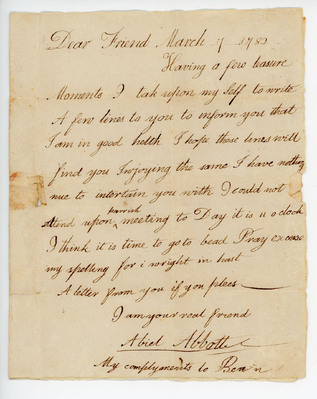 Dear Friend March 7 1789
Having a few leasure
Moments I tak upon my self to write
A few lines to you to inform you that
I am in good helth I hope these lines will
find you Injoying the same I have nothing
nue to intertain you with I could not
attend upon parrish meeting to Day it is 11 oclock
I think it is time to go to bead Pray excuse
my spelling for i wright in hast
A letter from you if you plees
I am your real friend
Abiel Abbott
My complyments to